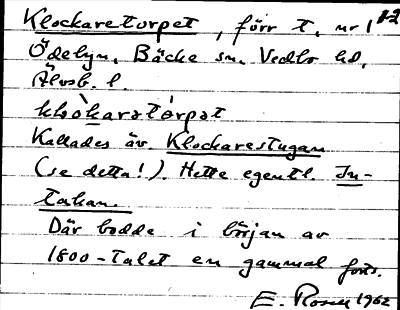 Klockaretorpet, förr t. nr 1 1-2
Ödebyn, Bäcke sn, Vedbo hd,
Älvsb. l.
klò̀karatórpat
Kallades äv. Klockarestugan
(se detta!). Hette egentl. In-
takan.
Där bodde i början av
1800-talet en gammal
E. Rosell 1962